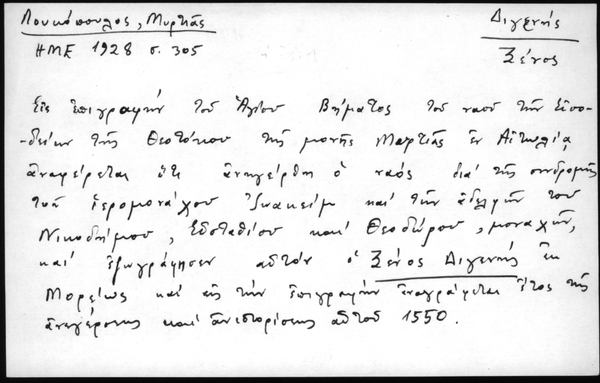 Λουκόπουλος, Μυρτιᾶς
Διγενής
ΗΜΕ 1928 σ. 305
Ξένος
Εἰς ἐπιγραφήν τοῦ Ἁγίου Βήματος τοῦ ναοῦ τῆν Εἰσο-
-δείων τῆς Θεοτόκου τῆς μονῆς Μυρτιᾶς ἐν Αἰτωλίᾳ
ἀναφέρεται ὅτι ἀνηγέρθη ὁ ναός διά τῆς συνδρομῆς
τοῦ ἱερομονάχου Ἰωακείμ καί τῶν ἀδελφῶν του
Νικοδήμου, Εὐσταθίου καί Θεοδώρου, μοναχῶν,
καί ἐζωγράφησεν αὐτόν ὁ Ξένος Διγενής ἐκ
Μορέως καί εἰς τήν ἐπιγραφήν ἀναγράφεται ἔτος τῆς
ἀνεγέρσεως καί ἀνιστορίσεως αὐτοῦ 1550.